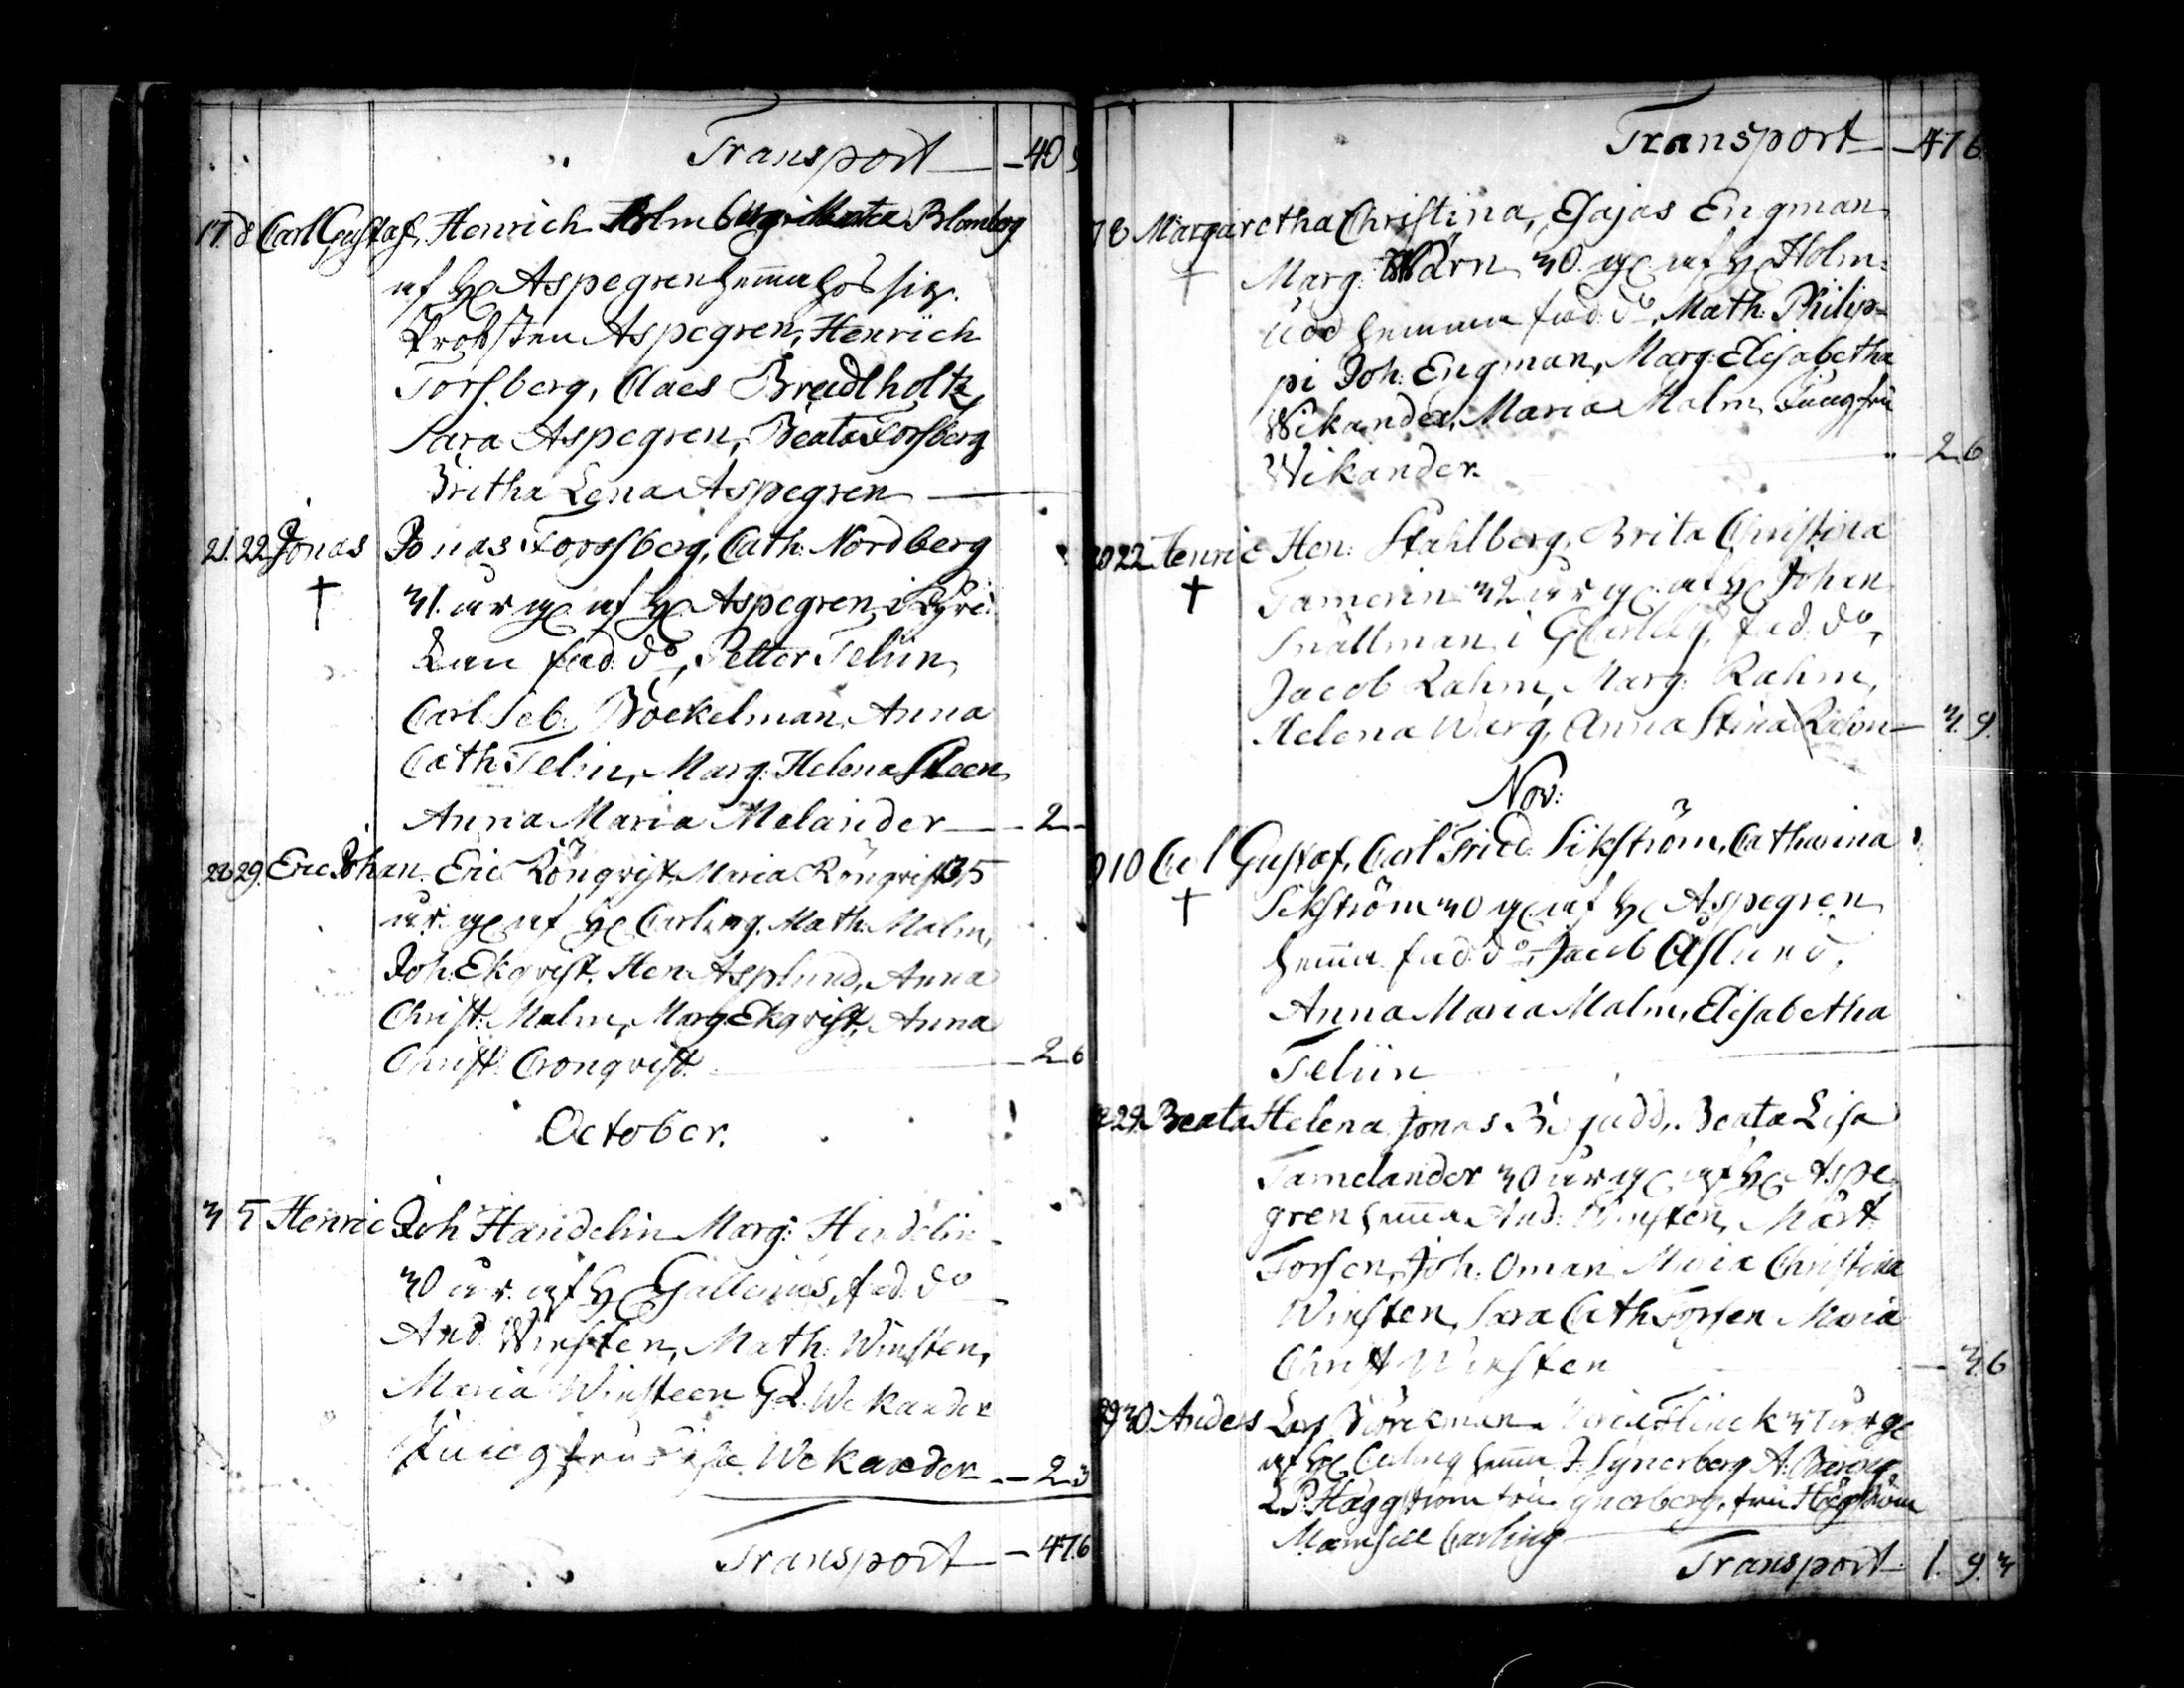 Transport — 40
17. 8 Carl Gustaf, Henrich Holmberg Blomberg
af H Aspegren hemma hos sig.
Probsten Aspegren, Henrich
Forsberg, Claes Breitholtz,
Sara Aspegren, Beata Forsberg
Britha Lena Aspegren —
21. 22 Jonas Jonas Forssberg, Cath. Nordberg
31. år g af H Aspegren, i Kyrc:
kan fad. do, Petter Telin,
Carl Seb. Böckelman, Anna
Cath. Telin, Marg. Helena Steen
Anna Maria Melander — 2 —
28 29. Eric Johan. Eric Rönqvist, Maria Rönqvist 35
år g af H Carling. Math. Malm,
Joh. Ekqvist, Hen. Asplund, Anna
Christ. Malm, Marg. Ekqvist, Anna
Christ. Cronqvist — 2 6
October.
3 5 Henric Joh Handelin Marg: Handelin
30 år. af H Gallenius, fad. do
And. Winsten, Math. Winsten,
Maria Winsteen G L Wekander
Jungfru Wekander — 2 3
Transport — 47 6
Transport — 47 6
7 8 Margaretha Christina, Esajas Engman
Marg. Wärn 30. g af H Holm:
udd hemma fad. do, Math. Philip-
pi Joh. Engman, Marg. Elisabetha
Wikander, Maria Malm, Jungfru
Wikander. — 2 6
20 22 Henric Hen: Stahlberg, Brita Christina
Tamerin 32 år g af H Johan
Snällman i Gcarleby, fad. do,
Jacob Rahm, Marg. Rahm,
Helena Warg, Anna Stina — 3. 9.
Nov:
9 10 Carl Gustaf, Carl Fried. Sikström, Catharina
Sikström 30 g af H Aspegren
hemma fad. do, Jacob Åslund,
Anna Maria Malm, Elisabetha
Teliin —
29. Beata Helena Jonas Beata Lisa
Tamelander 30 år g af H Aspe
gren hemma And. Winsten, Mårt.
Forsen, Joh. Oman Maria Christina
Winsten, Sara Cath Forssen Maria
Christ Winsten — 3 6
29 30 Anders Lars Björckman Flinck 35 år g
af H Carling hemma J. Synerberg A.
L. P. Häggström fru Synerberg, fru Häggström
Mamsell Carling —
Transport 1. 9. 3